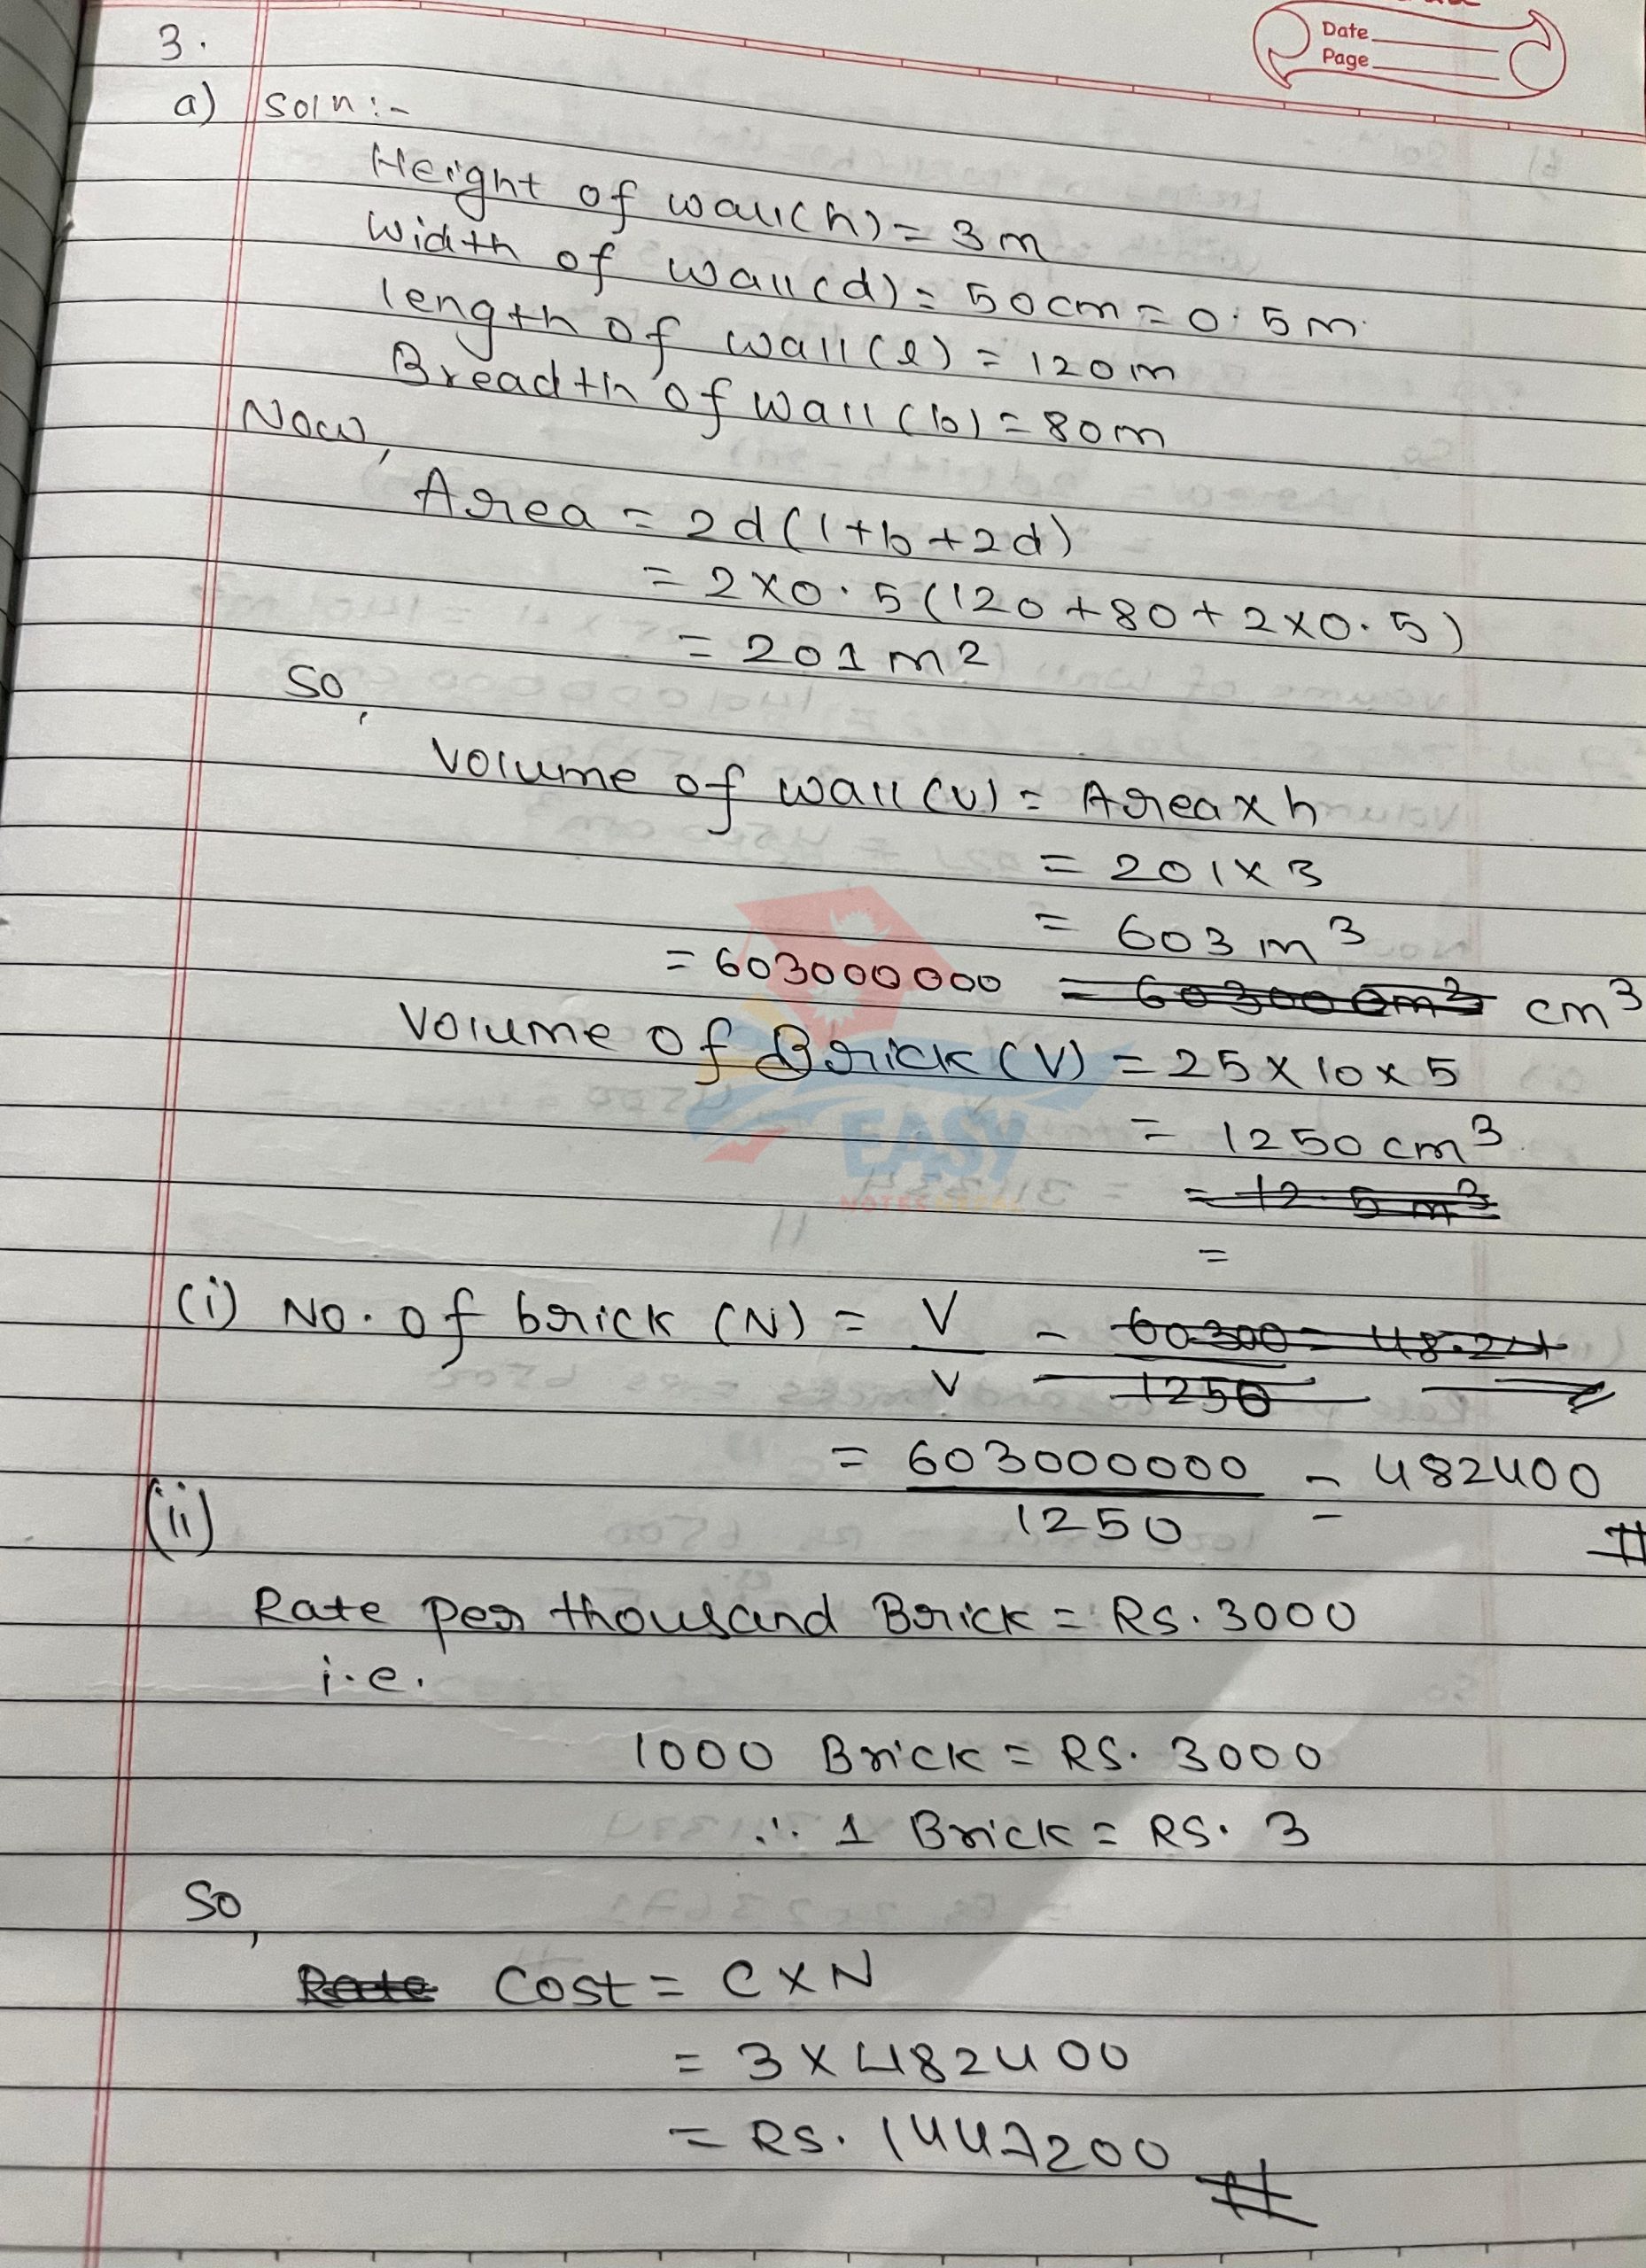 Date
Page
3.
a) Soln:-
Height of wall(h) = 3m
Width of wall(d) = 50cm = 0.5m
length of wall(l) = 120m
Breadth of wall(b) = 80m
Now,
Area = 2d(l+b+2d)
= 2×0.5(120+80+2×0.5)
= 201m²
So,
Volume of wall(v) = Area×h
= 201×3
= 603m³
= 603000000 = 60300cm³ cm³
Volume of Brick(V) = 25×10×5
= 1250cm³
= 12.5m³
=
(i) No. of brick (N) = V/v = 60300/1250 = 48.24
= 603000000/1250 = 482400
(ii)
Rate per thousand Brick = Rs. 3000
i.e.
1000 Brick = RS. 3000
∴ 1 Brick = RS. 3
So,
Rate Cost = C×N
= 3×482400
= RS. 1447200
EASY
NOTES NEPAL